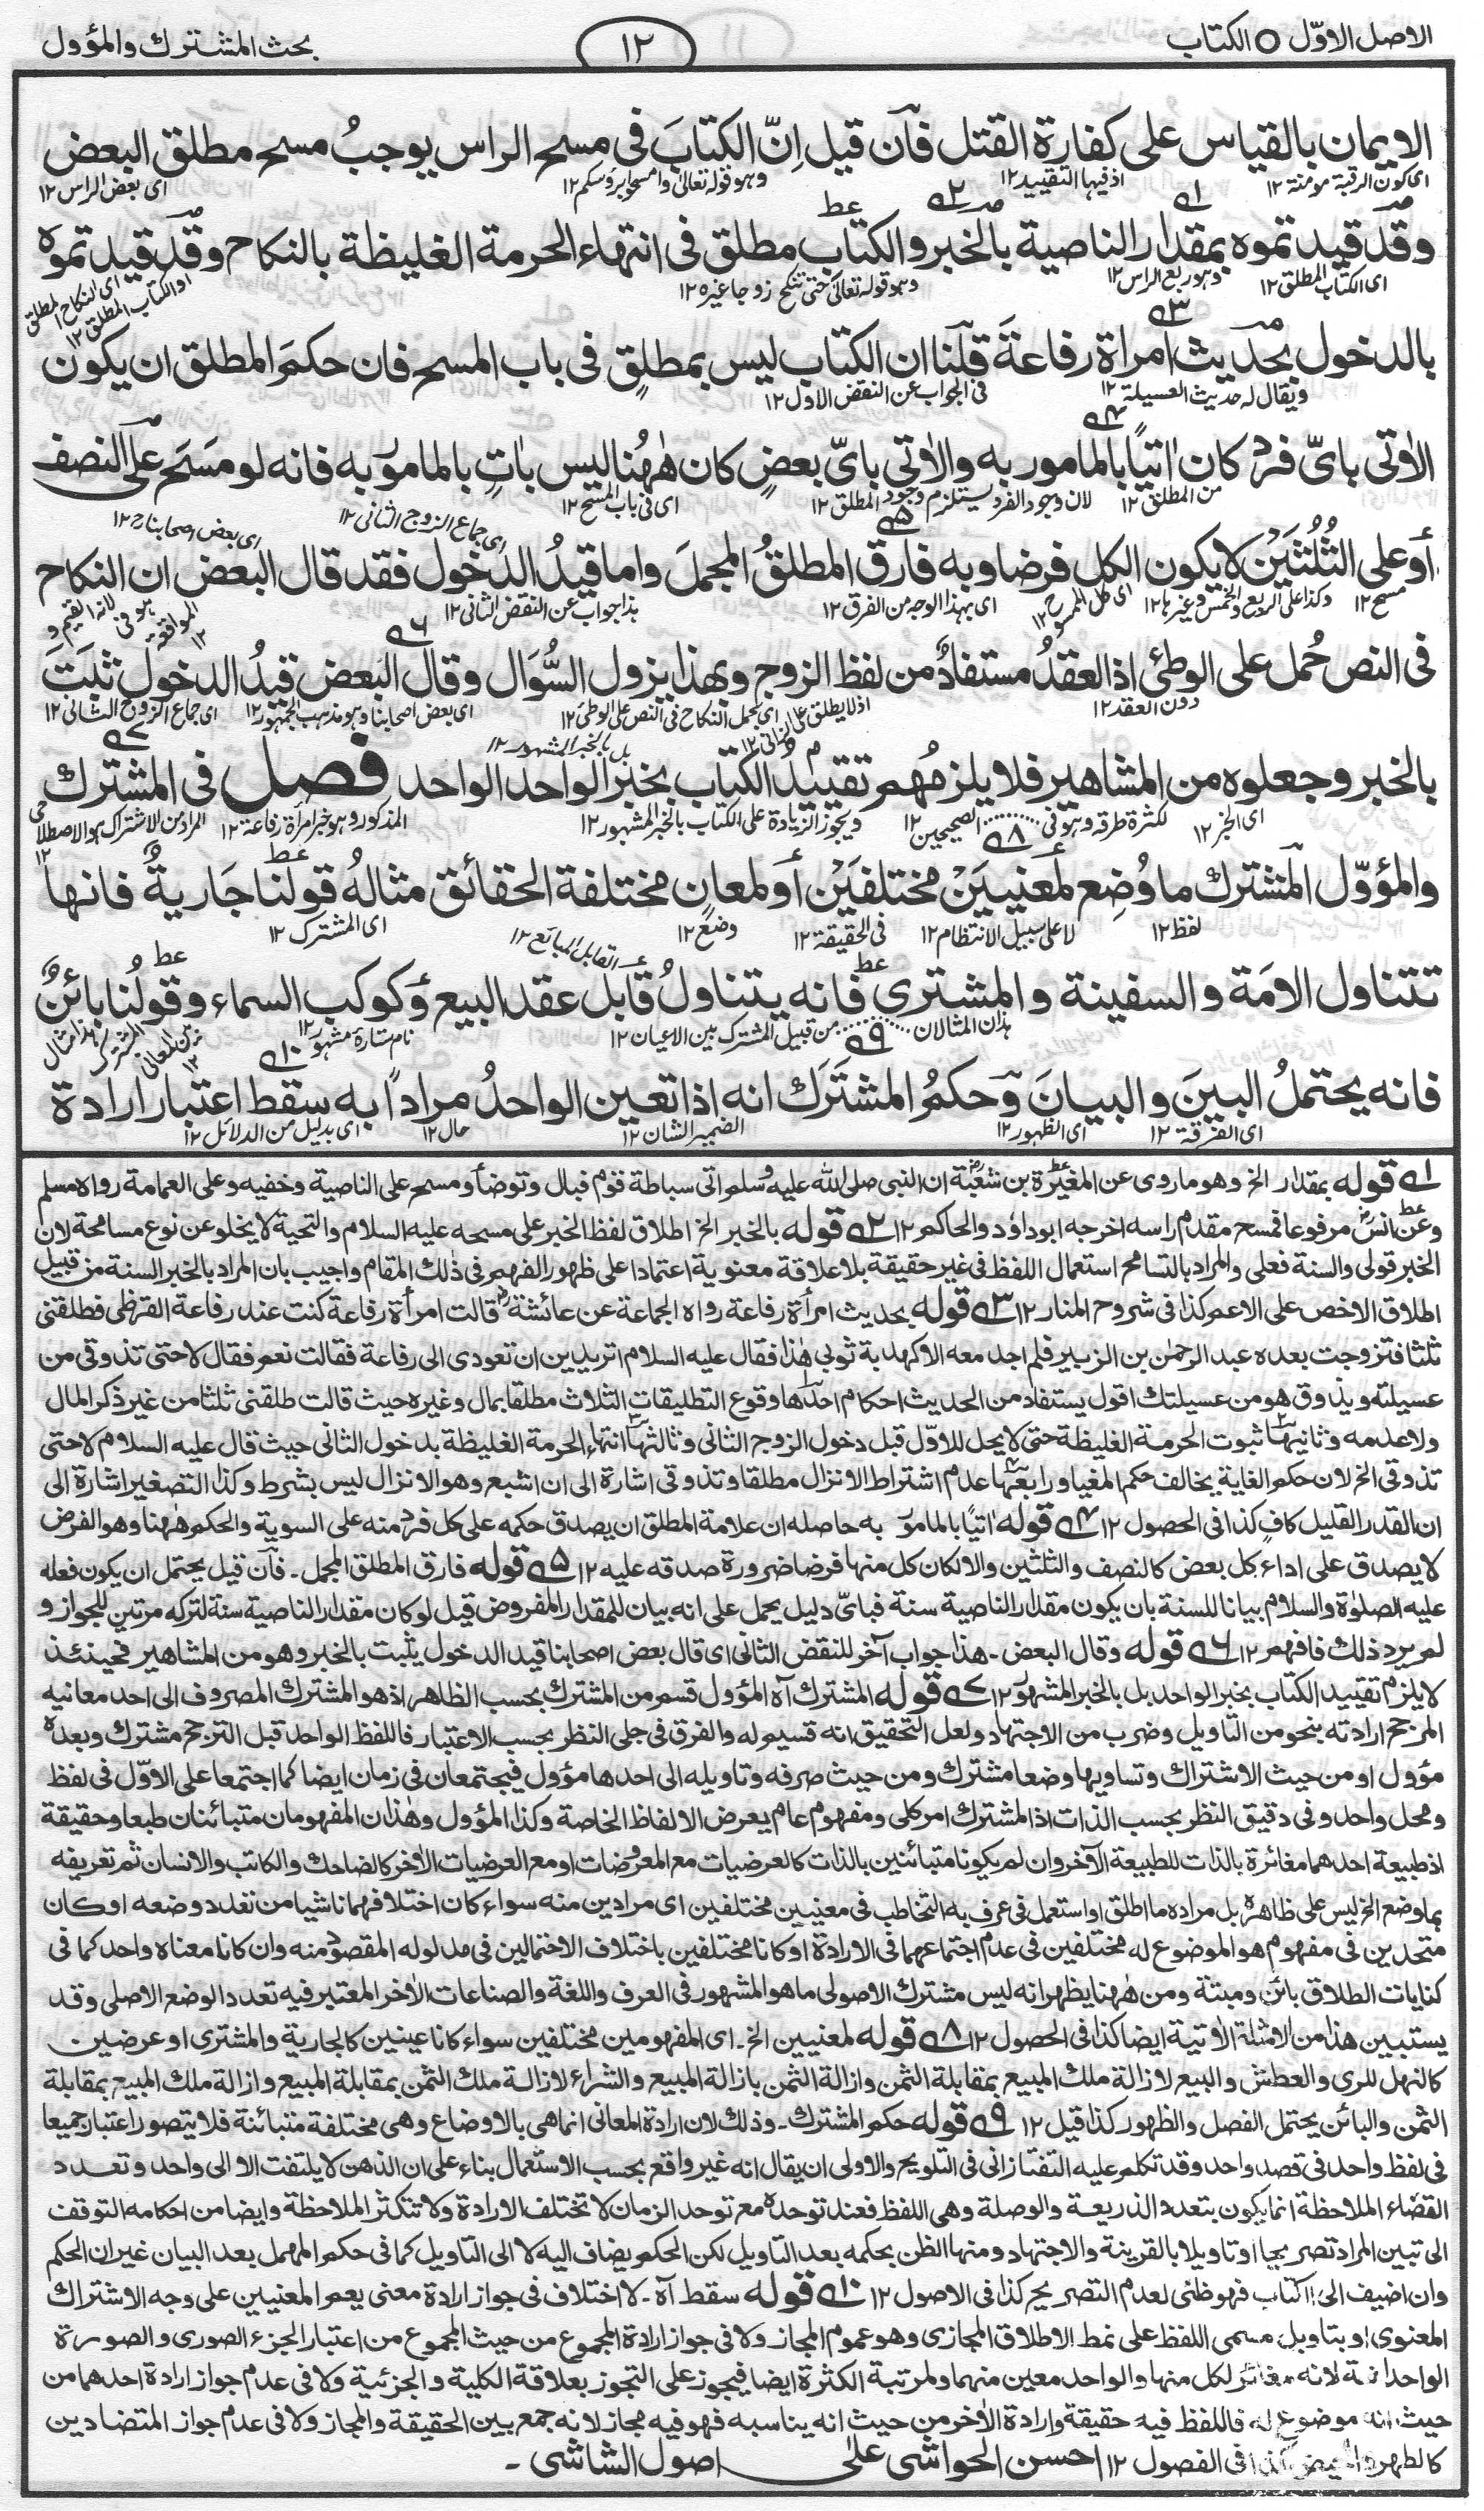 الاصل الاوّل ○ الكتاب
١٢
بحث المشترك والمؤول
الايمان بالقياس على كفارة القتل فان قيل اِنّ الكتابَ فى مسح الراس يوجبُ مسح مطلق البعض
اى كون الرقبة مومنة ١٢ اذ فيها التقييد ١٢ وهو قوله تعالى وامسحوا برؤسكم ١٢ اى بعض الراس ١٢
وقد قيد تموه بمقدار الناصية بالخبر والكتاب مطلق فى انتهاء الحرمة الغليظة بالنكاح وقد قيد تموه
اى الكتاب المطلق ١٢ وهو ربع الراس ١٢ وهو قوله تعالى حتى تنكح زوجا غيره ١٢ اى النكاح المطلق او الكتاب المطلق ١٢
بالدخول بحديث امراة رفاعةَ قلنا ان الكتاب ليس بمطلقٍ فى باب المسح فان حكمَ المطلق ان يكون
ويقال له حديث العسيلة ١٢ فى الجواب عن النقض الاول ١٢
الاٰتى باىّ فردٍ كان اٰتيًا بالمامور به والاٰتى باىّ بعضٍ كان هٰهُنا ليس باٰتٍ بالمامور به فانه لو مسَحَ على النصف
من المطلق ١٢ لان وجود الفرد يستلزم وجود المطلق ١٢ اى فى باب المسح ١٢
اى جماع الزوج الثانى ١٢ اى بعض اصحابنا ١٢
اَو على الثُلُثَيْن لا يكون الكل فرضا وبه فارق المطلقُ المجملَ واما قيدُ الدخول فقد قال البعض ان النكاح
مسح ١٢ وكذا على الربع والخمس وغيرها ١٢ اى كل الممسوح ١٢ اى بهذا الوجه من الفرق ١٢ هذا جواب عن النقض الثانى ١٢
فى النص حُمل على الوطئ اذ العقدُ مستفادٌ من لفظ الزوج وبهذا يزول السُّوَال وقال البَعض قيدُ الدخول ثبَتَ
دون العقد ١٢ اى لحمل النكاح فى النص على الوطئ ١٢ اى بعض اصحابنا وهو مذهب الجمهور ١٢ اى جماع الزوج الثانى ١٢
بل بالخبر المشهور ١٢
بالخبر وجعلوه من المشاهير فلا يلزمُهم تقييد الكتاب بخبر الواحد الواحد فصل فى المشترك
اى الخبر ١٢ لكثرة طرقه وهو فى الصحيحين ١٢ ويجوز الزيادة على الكتاب بالخبر المشهور ١٢ المذكور وهو خبر امرأة رفاعة ١٢ المراد من الاشتراك هو الاصطلاحى ١٢
والمؤوّل المشترك ما وُضِع لمعنيَيَنْ مختلفَيَنْ اَو لمعانٍ مختلفة الحقائق مثالهُ قولنا جَاريةٌ فانها
لفظ ١٢ لا على سبيل الانتظام ١٢ فى الحقيقة ١٢ وضعٍ ١٢ اى المشترك ١٢
تتناول الامَة والسفينة والمشترى فانه يتناولُ قابل عقد البيع وكوكب السماء وقولُنا بائنٌ
هذان المثالان من قبيل المشترك بين الاعيان ١٢ نام ستاره مشهور ١٢
فانه يحتملُ البينَ والبيانَ وحكمُ المشتَرَك انه اذا تعين الواحدُ مراداً به سقط اعتبار ارادة
اى الفرقة ١٢ اى الظهور ١٢ الضمير الشان ١٢ حال ١٢ اى بدليل من الدلائل ١٢
١ قوله بمقدار الخ وهو ما روى عن المغيرة بن شعبة ان النبى صلى الله عليه وسلم اتى سباطة قوم فبال وتوضأ ومسح على الناصية وخفيه وعلى العمامة رواه مسلم
وعن انس مرفوعا فمسح مقدم راسه اخرجه ابوداؤد والحاكم ١٢ ٢ قوله بالخبر الخ اطلاق لفظ الخبر على مسحه عليه السلام والتحية لا يخلو عن نوع مسامحة لان
الخبر قولى والسنة فعلى والمراد بالتسامح استعمال اللفظ فى غير حقيقة بلا علاقة معنوية اعتمادا على ظهور الفهم فى ذلك المقام واجيب بان المراد بالخبر السنة من قبيل
اطلاق الاخص على الاعم كذا فى شروح المنار ١٢ ٣ قوله بحديث امرأة رفاعة رواه الجماعة عن عائشة قالت امرأة رفاعة كنت عند رفاعة القرظى فطلقنى
ثلثا فتزوجت بعده عبد الرحمٰن بن الزبير فلم اجد معه الا كهدبة ثوبى هٰذا فقال عليه السلام اتريدين ان تعودى الى رفاعة فقالت نعم فقال لا حتى تذوقى من
عسيلته ويذوق هو من عسيلتك اقول يستفاد من الحديث احكام احدها وقوع التطليقات الثلاث مطلقا بمال وغيره حيث قالت طلقنى ثلثا من غير ذكر المال
ولا عدمه وثانيها ثبوت الحرمة الغليظة حتى لا يحل للاوّل قبل دخول الزوج الثانى وثالثها انتهاء الحرمة الغليظة بدخول الثانى حيث قال عليه السلام لا حتى
تذوقى الخ لان حكم الغاية يخالف حكم المغيا ورابعها عدم اشتراط الانزال مطلقا وتذوقى اشارة الى ان اشبع وهو الانزال ليس بشرط وكذا التصغير اشارة الى
ان القدر القليل كافٍ كذا فى الحصول ١٢ ٤ قوله اٰتيًا بالمامور به حاصله ان علامة المطلق ان يصدق حكمه على كل فرد منه على السوية والحكم هٰهنا وهو الفرض
لا يصدق على اداءِ كل بعض كالنصف والثلثين والا لكان كل منها فرضا ضرورة صدقه عليه ١٢ ٥ قوله فارق المطلق المجمل ـ فان قيل يحتمل ان يكون فعله
عليه الصلوٰة والسلام بيانا للسنة بان يكون مقدار الناصية سنة فباىّ دليل يحمل على انه بيان للمقدار المفروض قيل لو كان مقدار الناصية سنة لتركه مرتين للجواز و
لم يرد ذلك فافهم ١٢ ٦ قوله وقال البعض ـ هذا جواب آخر للنقض الثانى اى قال بعض اصحابنا قيد الدخول يثبت بالخبر وهو من المشاهير فحينئذ
لا يلزم تقييد الكتاب بخبر الواحد بل بالخبر المشهور ١٢ ٧ قوله المشترك آه المؤول قسم من المشترك بحسب الظاهر اذ هو المشترك المصروف الى احد معانيه
المرجح ارادته بنحو من التاويل وضرب من الاجتهاد ولعل التحقيق انه قسيم له والفرق فى جلى النظر بحسب الاعتبار فاللفظ الواحد قبل الترجح مشترك وبعده
مؤول او من حيث الاشتراك وتساويها وضعا مشترك ومن حيث صرفه وتاويله الى احدها مؤول فيجتمعان فى زمان ايضا كما اجتمعا على الاوّل فى لفظ
ومحل واحد وفى دقيق النظر بحسب الذات اذ المشترك امر كلى ومفهوم عام يعرض الالفاظ الخاصة وكذا المؤول وهٰذان المفهومان متبائنان طبعا وحقيقة
اذ طبيعة احدهما مغائرة بالذات للطبيعة الآخر وان لم يكونا متبائنين بالذات كالعرضيات مع المعروضات او مع العرضيات الاُخر كالضاحك والكاتب والانسان ثم تعريفه
بما وضع الخ ليس على ظاهره بل مراده ما اطلق او استعمل فى عرف به التخاطب فى معنيين مختلفين اى مرادين منه سواء كان اختلافهما ناشيا من تعدد وضعه او كان
متحدين فى مفهوم هو الموضوع له مختلفين فى عدم اجتماعهما فى الارادة او كانا مختلفين باختلاف الاحتمالين فى مدلوله المقصود منه وان كانا معناه واحد كما فى
كنايات الطلاق بائن ومبتة ومن هٰهنا يظهر انه ليس مشترك الاصولى ما هو المشهور فى العرف واللغة والصناعات الاُخر المعتبر فيه تعدد الوضع الاصلى وقد
يستبين هذا من الامثلة الاٰتية ايضا كذا فى الحصول ١٢ ٨ قوله لمعنيين الخ ـ اى المفهومين مختلفين سواء كانا عينين كالجارية والمشترى او عرضين
كالنهل للرى والعطش والبيع لازالة ملك المبيع بمقابلة الثمن وازالة الثمن بازالة المبيع والشراء لازالة ملك الثمن بمقابلة المبيع وازالة ملك المبيع بمقابلة
الثمن والبائن يحتمل الفصل والظهور كذا قيل ١٢ ٩ قوله حكم المشترك ـ وذلك لان ارادة المعانى انما هى بالاوضاع وهى مختلفة متبائنة فلا يتصور اعتبار جميعا
فى لفظ واحد فى قصد واحد وقد تكلم عليه التفتازانى فى التلويح والاولى ان يقال انه غير واقع بحسب الاستعمال بناء على ان الذهن لا يلتفت الا الى واحد وتعدد
القضاء الملاحظة انما يكون بتعدد الذريعة والوصلة وهى اللفظ فعند توحده مع توحد الزمان لا تختلف الارادة ولا تتكثر الملاحظة وايضا من احكامه التوقف
الى تبين المراد تصريحا او تاويلا بالقرينة والاجتهاد ومنها الظن بحكمه بعد التاويل لكن الحكم يضاف اليه لا الى التاويل كما فى حكم المجمل بعد البيان غير ان الحكم
وان اضيف الى الكتاب فهو ظنى لعدم التصريح كذا فى الاصول ١٢ ١٠ قوله سقط آه ـ لا اختلاف فى جواز ارادة معنى يعم المعنيين على وجه الاشتراك
المعنوى او بتاويل مسمى اللفظ على نمط الاطلاق المجازى وهو عموم المجاز ولا فى جواز ارادة المجموع من حيث المجموع من اعتبار الجزء الصورى والصورة
لانه مغائر لكل منها والواحد معين منهما ولمرتبة الكثرة ايضا فيجوز على التجوز بعلاقة الكلية والجزئية ولا فى عدم جواز ارادة احدهما من
حيث انه موضوع له فاللفظ فيه حقيقة وارادة الاٰخر من حيث انه يناسبه فهو فيه مجاز لانه جمع بين الحقيقة والمجاز ولا فى عدم جواز المتضادين
كالطهر والحيض كذا فى الفصول ١٢ احسن الحواشى على اصول الشاشى ـ